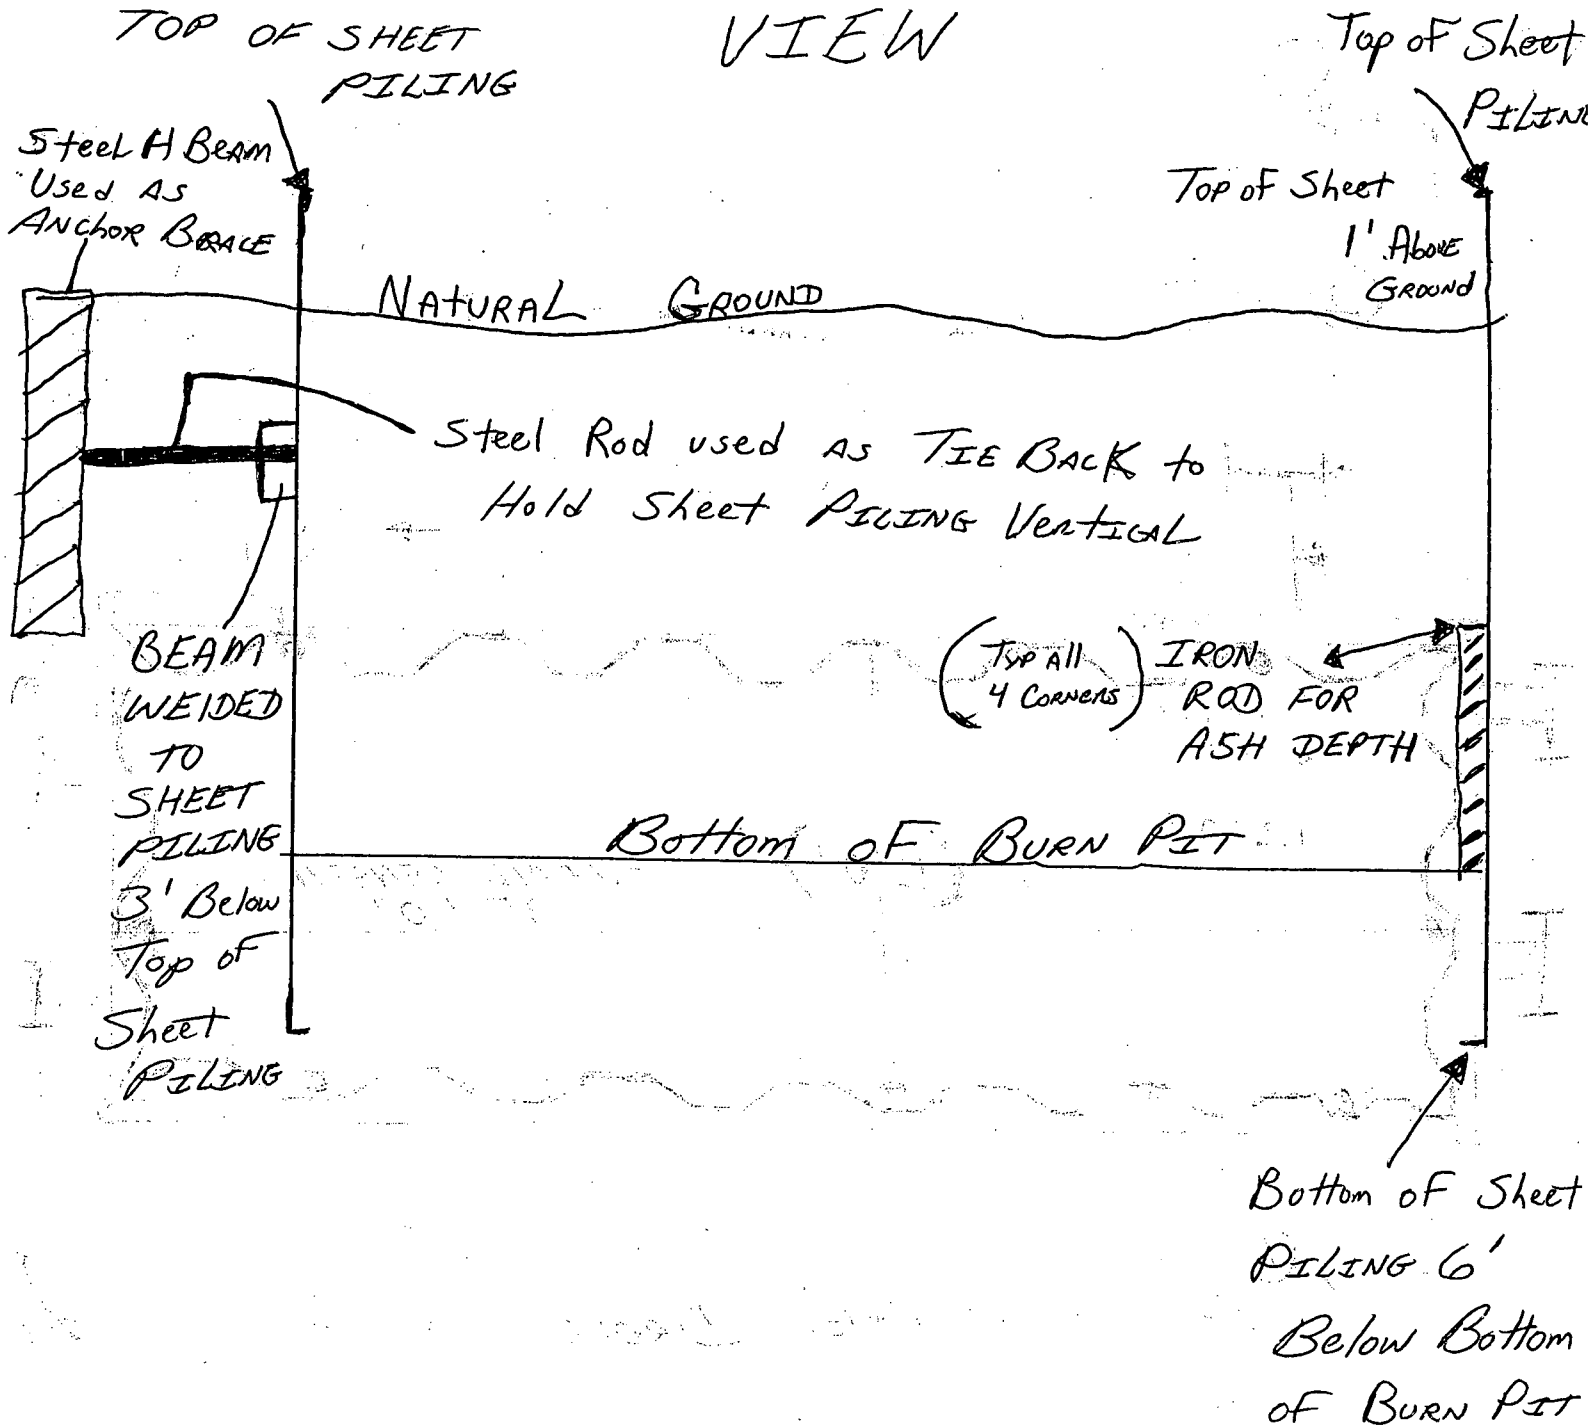 TOP OF SHEET
PILING
VIEW
Top of Sheet
PILING
Steel H Beam
Used As
ANCHOR BRACE
Top of Sheet
1' Above
GROUND
NATURAL GROUND
Steel Rod used AS TIE BACK to
Hold Sheet PILING VERTICAL
BEAM
WELDED
TO
SHEET
PILING
3' Below
Top of
Sheet
PILING
(Typ All
4 CORNERS)
IRON
ROD FOR
ASH DEPTH
Bottom OF BURN PIT
Bottom OF Sheet
PILING 6'
Below Bottom
OF BURN PIT